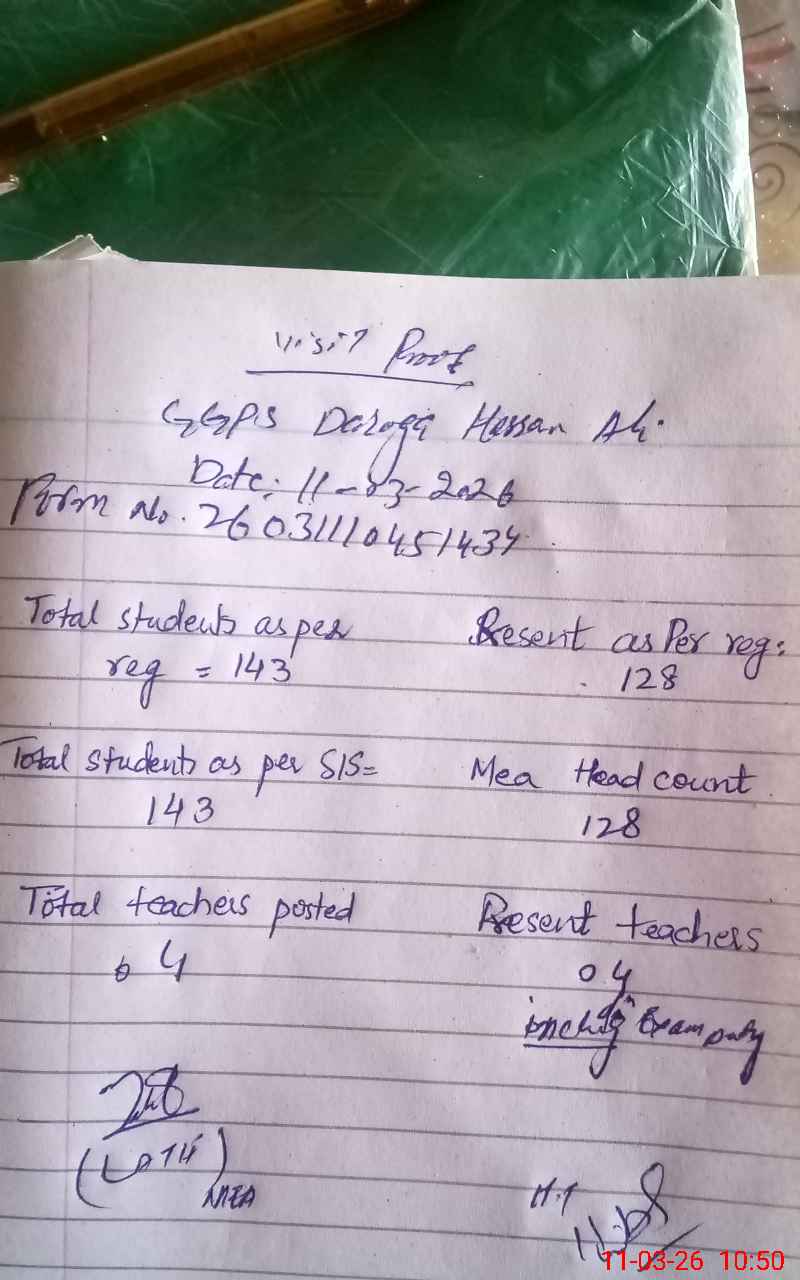 Visit Proof
GGPS Daroga Hassan Ali.
Date: 11-03-2026
Form No. 26031110451434
Total students as per reg = 143
Present as Per reg: 128
Total students as per SIS= 143
Mea Head count 128
Total teachers posted 04
Present teachers 04
Exam Duty
MEA
H.T
11-03-26 10:50